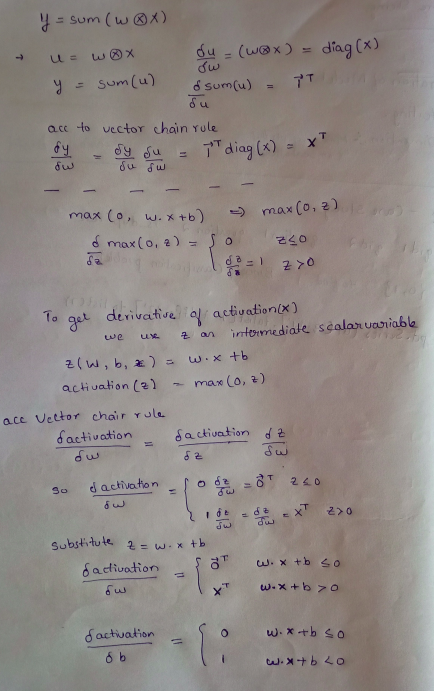 y = sum(w⊗x)
→ u = w⊗x δu/δw = (w⊗x) = diag(x)
y = sum(u) δ/δu sum(u) = 1⃗ᵀ
acc to vector chain rule
δy/δw = δy/δu δu/δw = 1⃗ᵀ diag(x) = xᵀ
— — — — — —
max(0, w.x+b) ⇒ max(0,z)
δ/δz max(0,z) = { 0 z≤0
δz/δz = 1 z>0
To get derivative of activation(x)
we use z an intermediate scalar variable
z(w, b, x) = w.x+b
activation(z) = max(0,z)
acc Vector chair rule
δactivation/δw = δactivation/δz δz/δw
so δactivation/δw = { 0 δz/δw = 0⃗ᵀ z≤0
1 δz/δw = δz/δw = xᵀ z>0
Substitute z = w.x+b
δactivation/δw = { 0⃗ᵀ w.x+b ≤0
xᵀ w.x+b >0
δactivation/δb = { 0 w.x+b ≤0
1 w.x+b <0